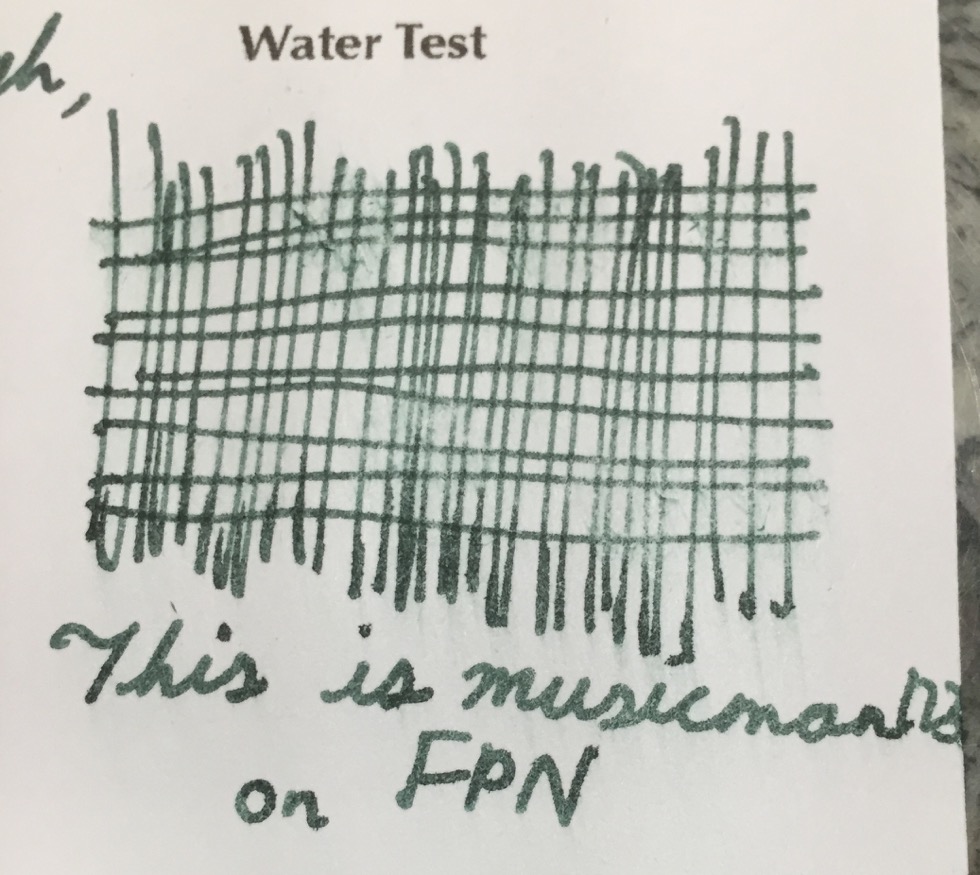 Water Test
This is musicman
on FPN